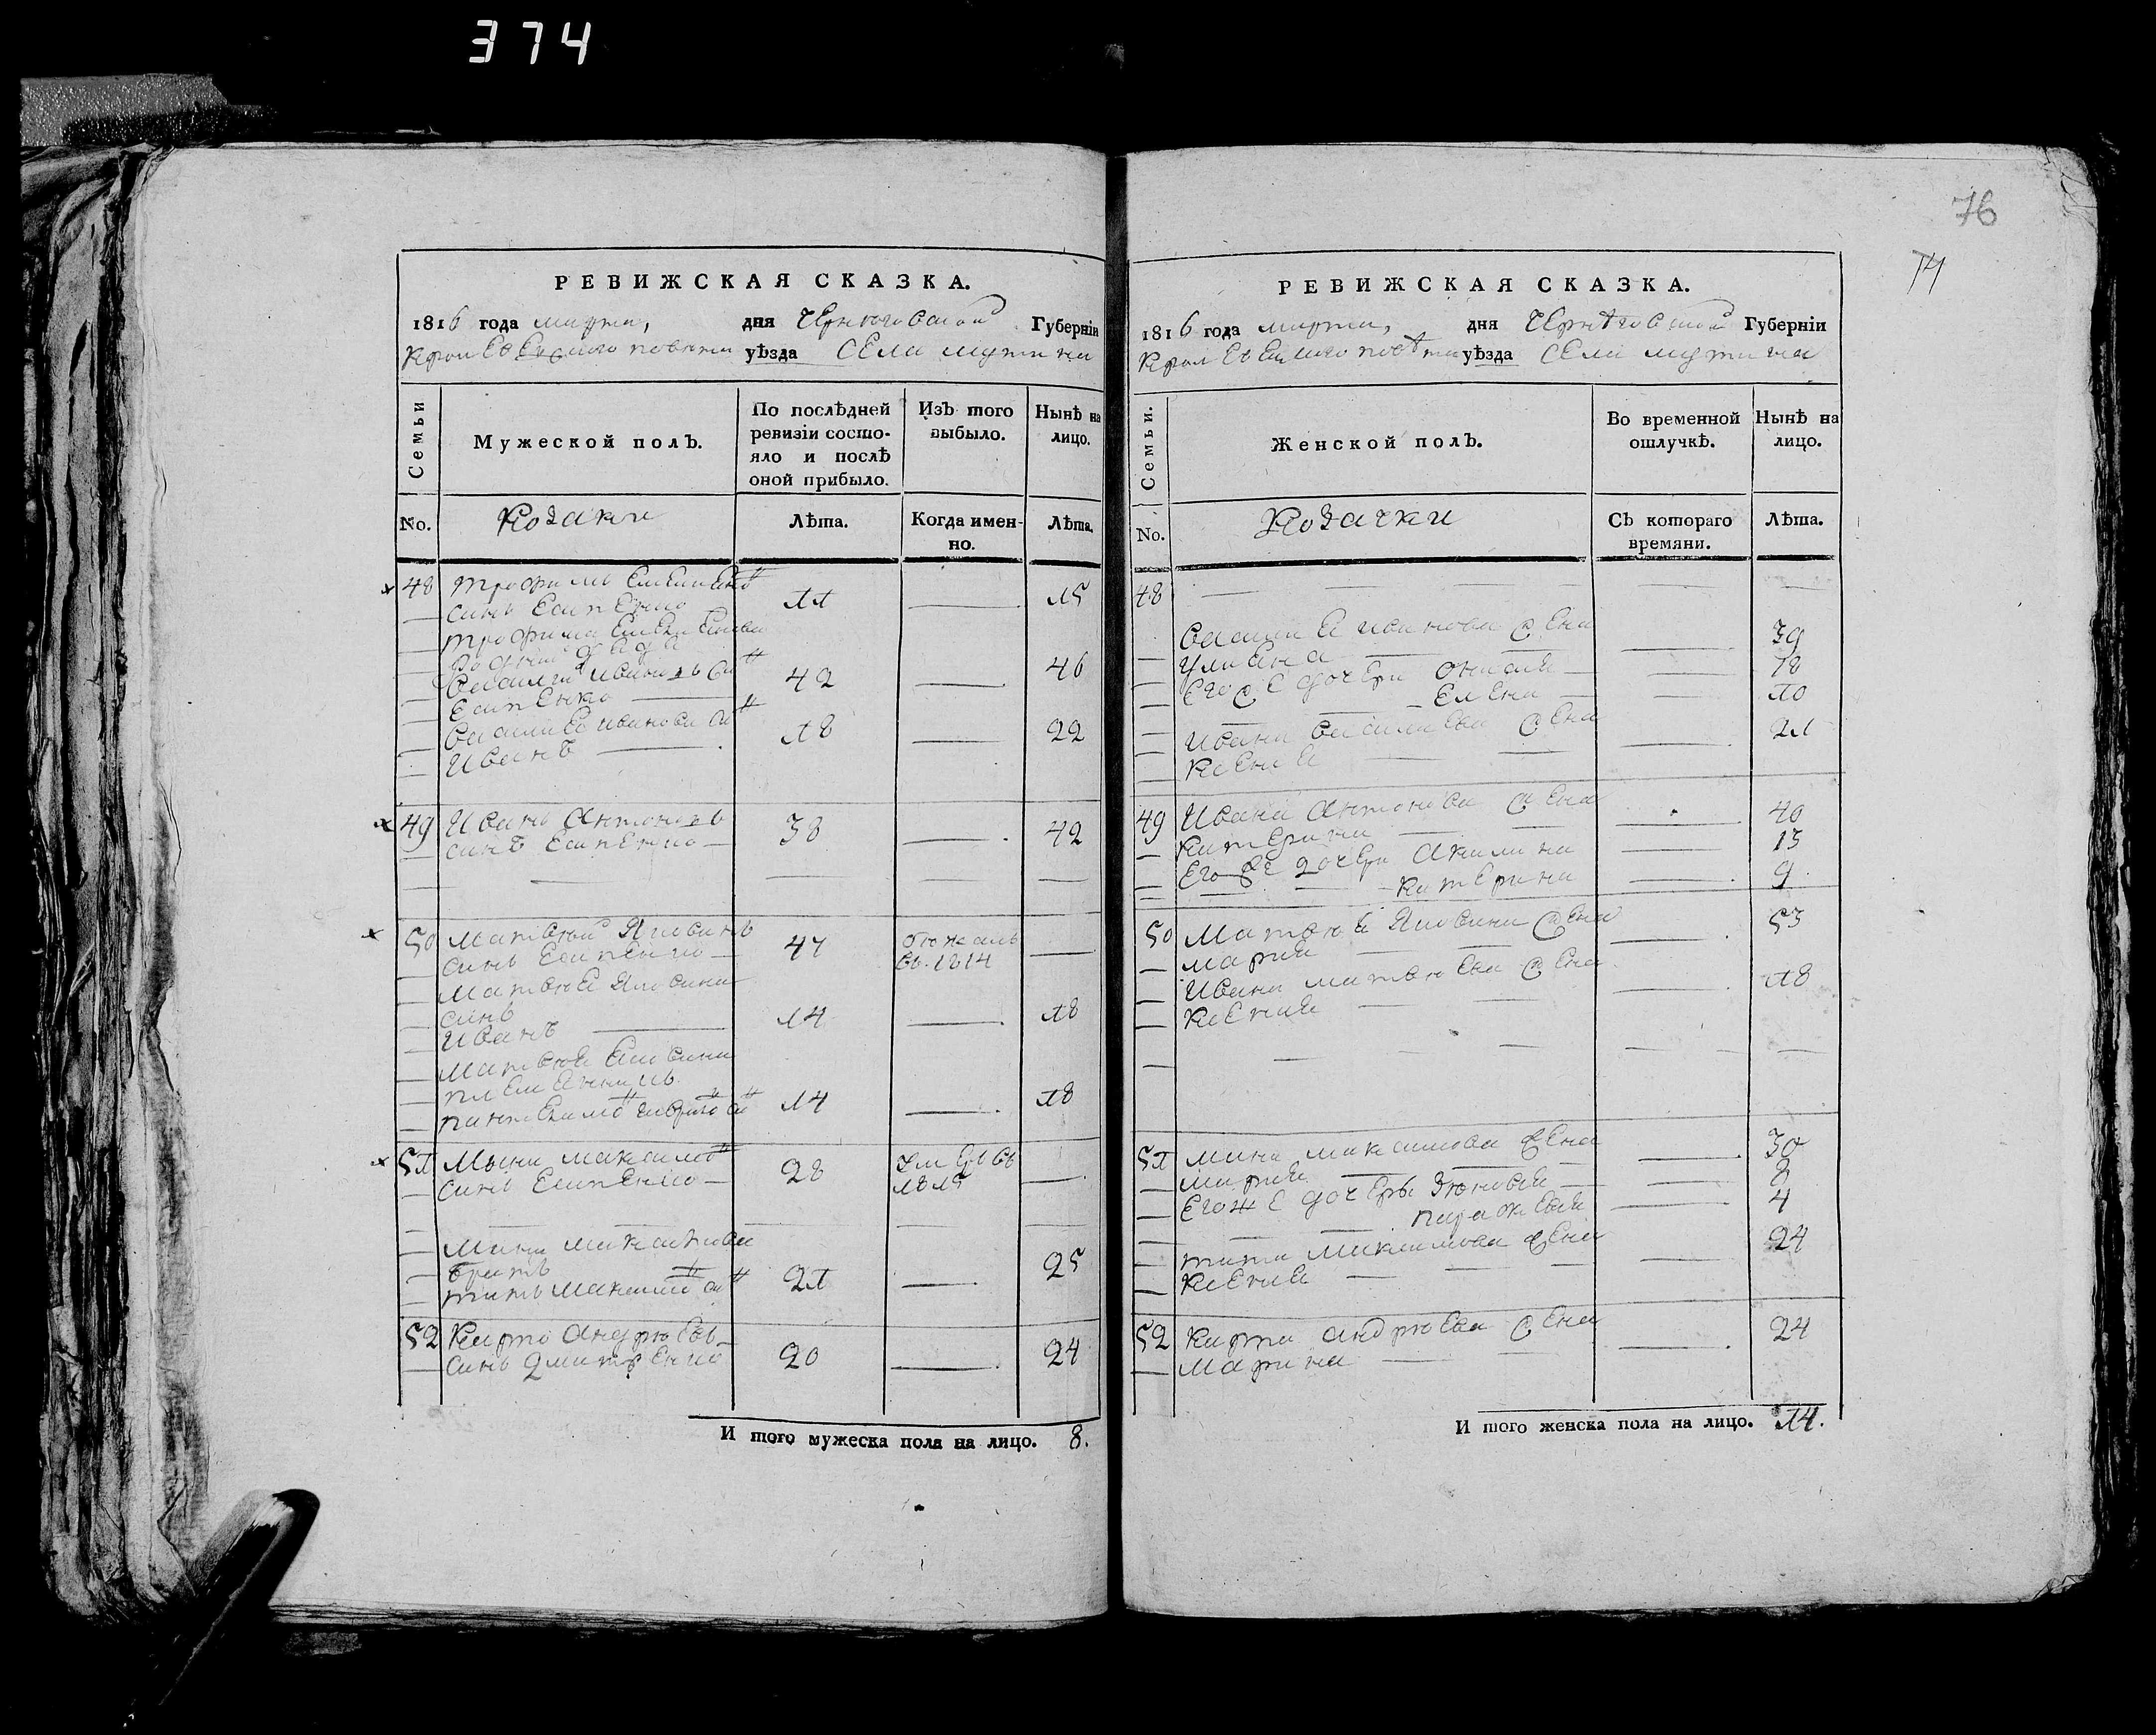 374
РЕВИЖСКАЯ СКАЗКА.
1816 года марта, дня Черниговской Губерніи
Кролевецкого повета уѣзда Села мутина
Семьи
Мужеской полъ.
По послѣдней ревизіи состояло и послѣ оной прибыло.
Изъ того выбыло.
Нынѣ на лицо.
No.
Козаки
Лѣта.
Когда именно.
Лѣта.
48 Трофимъ
синъ Есипенко 11 15
Трофима
Василій Ивановъ синъ 42 46
Есипенко
Василиев Иванова синъ
Иванъ 18 22
49 Иванъ Антоновъ
синъ Есипенко 38 42
50 Матвюй Яковинъ
синъ Есипенко 47 бюжалъ въ 1814
Матвюя Яковина
синъ
Иванъ 14 18
Матвюя Яковина
племянникъ
14 18
51 Мына Максимов
синъ Есипенко 28 умеръ въ 1815
Мины Максимова
братъ
титъ Максимов синъ 21 25
52 Карпо Андрюевъ
синъ Дмитренко 20 24
И того мужеска пола на лицо. 8.
76
74
РЕВИЖСКАЯ СКАЗКА.
1816 года марта, дня Чернѣговской Губерніи
Кролевецкого повѣта уѣзда Села мутина
Семьи.
Женской полъ.
Во временной отлучкѣ.
Нынѣ на лицо.
No.
Козачки
Съ котораго времяни.
Лѣта.
48
Василия Иванова жена 39
Улияна
Его же дочери 18
Елена 10
Ивана Василиева жена 21
Ксения
49 Ивана Антонова жена 40
Катерина
Его же дочери Акилина 13
Катерина 9
50 Матвюя Яковина жена 53
Мария
Ивана Матвюева жена 18
Ксения
51 Мина Максимова жена 30
Мария
Его же дочеры Зюновия 8
параскевия 4
тита Максимова жена 24
Ксения
52 Карпа Андрюева жена 24
Марина
И того женска пола на лицо. 14.